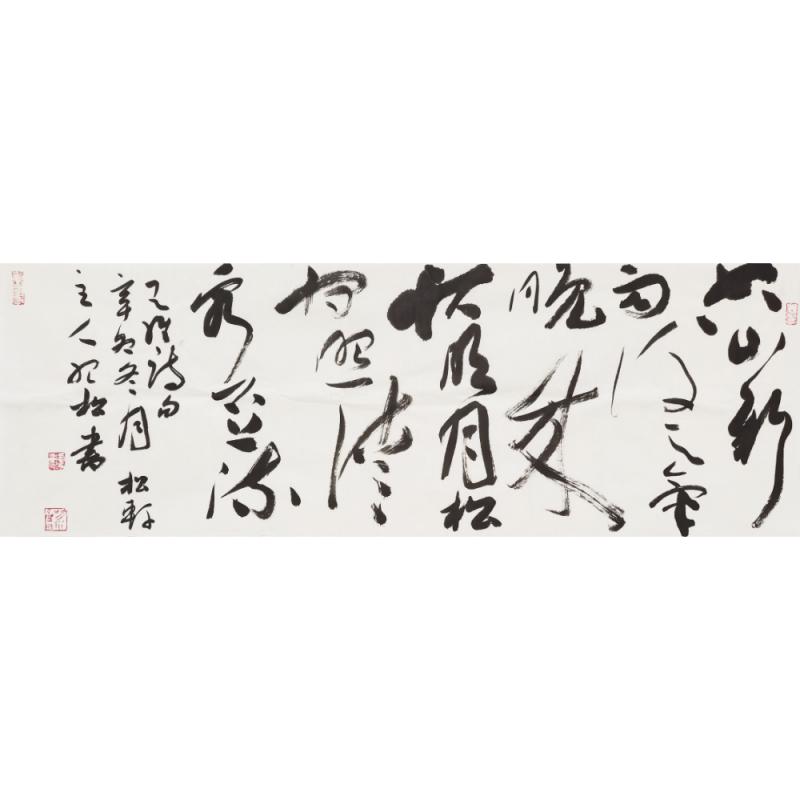 空山新
雨後天氣
晚来
秋明月松
间照清
泉石上流
王维诗句
辛丑冬月 松轩
主人松书